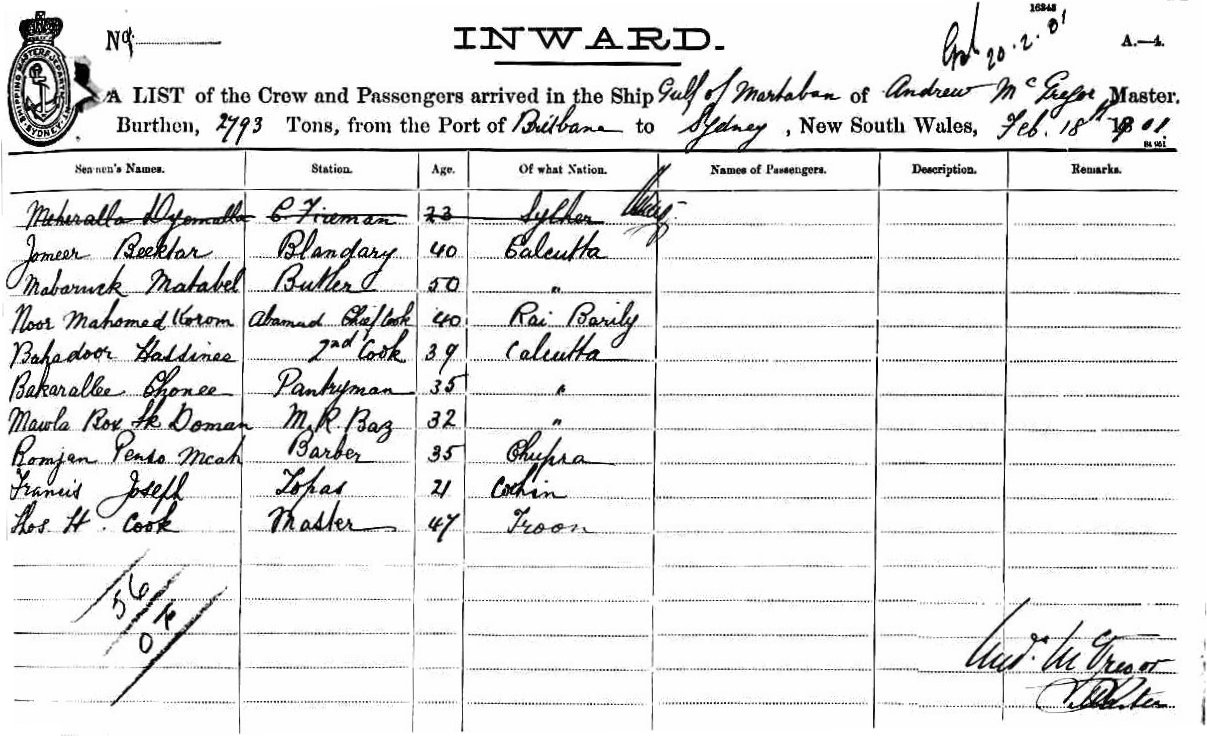 16343
Nọ.
INWARD.
20.2.01
A.—4.
A LIST of the Crew and Passengers arrived in the Ship Gulf of Martaban of Andrew McGregor Master.
Burthen, 2793 Tons, from the Port of Brisbane to Sydney, New South Wales, Feb. 18th 1901.
SHIPPING MASTERS DEPARTMENT SYDNEY
Seamen's Names. Station. Age. Of what Nation. Names of Passengers. Description. Remarks.
Meheralla C. Fireman 23
Jomeer Beektar Blandary 40 Calcutta
Mabaruck Matabel Butler 50 "
Noor Mahomed Korom Chief Cook 40 Rai Barily
Bahadoor Hassinee 2nd Cook 39 Calcutta
Bakarallee Chonee Pantryman 35 "
Mawla Box Sk Doman M. R. Baz 32 "
Romjan Barber 35 Chupra
Francis Joseph Topas 21 Cochin
Thos. H. Cook Master 47 Troon
56
0
And. McGregor
Master